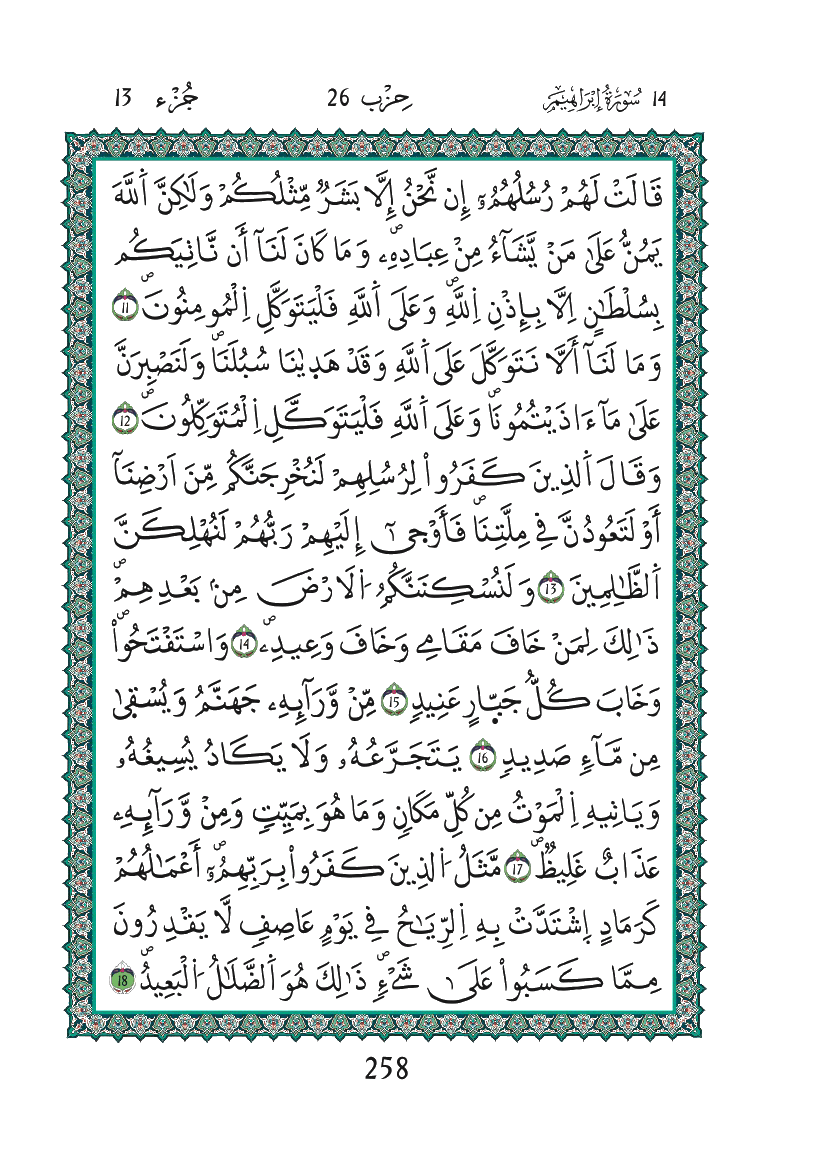 14 سُورَةُ إِبْرَاهِيمَ حِزْب 26 جُزْء 13
قَالَتْ لَهُمْ رُسُلُهُمُۥٓ إِن نَّحْنُ إِلَّا بَشَرٌ مِّثْلُكُمْ وَلَٰكِنَّ اَ۬للَّهَ
يَمُنُّ عَلَىٰ مَنْ يَّشَآءُ مِنْ عِبَادِهِۦۖ وَمَا كَانَ لَنَآ أَن نَّاتِيَكُم
بِسُلْطَٰنٍ اِلَّا بِإِذْنِ اِ۬للَّهِۖ وَعَلَى اَ۬للَّهِ فَلْيَتَوَكَّلِ اِ۬لْمُومِنُونَۖ 11
وَمَا لَنَآ أَلَّا نَتَوَكَّلَ عَلَى اَ۬للَّهِ وَقَدْ هَدَىٰنَا سُبُلَنَاۖ وَلَنَصْبِرَنَّ
عَلَىٰ مَآ ءَاذَيْتُمُونَاۖ وَعَلَى اَ۬للَّهِ فَلْيَتَوَكَّلِ اِ۬لْمُتَوَكِّلُونَۖ 12
وَقَالَ اَ۬لذِينَ كَفَرُواْ لِرُسُلِهِمْ لَنُخْرِجَنَّكُم مِّنَ اَرْضِنَآ
أَوْ لَتَعُودُنَّ فِي مِلَّتِنَاۖ فَأَوْحَىٰٓ إِلَيْهِمْ رَبُّهُمْ لَنُهْلِكَنَّ
اَ۬لظَّٰلِمِينَ 13 وَلَنُسْكِنَنَّكُمُ اُ۬لَارْضَ مِنۢ بَعْدِهِمْۖ
ذَٰلِكَ لِمَنْ خَافَ مَقَامِے وَخَافَ وَعِيدِۦۖ 14 وَاسْتَفْتَحُواْۖ
وَخَابَ كُلُّ جَبّ۪ارٍ عَنِيدٖ 15 مِّنْ وَّرَآئِهِۦ جَهَنَّمُ وَيُسْقَىٰ
مِن مَّآءٖ صَدِيدٖ 16 يَتَجَرَّعُهُۥ وَلَا يَكَادُ يُسِيغُهُۥ
وَيَاتِيهِ اِ۬لْمَوْتُ مِن كُلِّ مَكَانٖ وَمَا هُوَ بِمَيِّتٖ وَمِنْ وَّرَآئِهِۦ
عَذَابٌ غَلِيظٞۖ 17 مَّثَلُ اُ۬لذِينَ كَفَرُواْ بِرَبِّهِمُۥٓۖ أَعْمَٰلُهُمْ
كَرَمَادٍ اِ۪شْتَدَّتْ بِهِ اِ۬لرِّيَٰحُ فِي يَوْمٍ عَاصِفٖ لَّا يَقْدِرُونَ
مِمَّا كَسَبُواْ عَلَىٰ شَےْءٖۖ ذَٰلِكَ هُوَ اَ۬لضَّلَٰلُ اُ۬لْبَعِيدُۖ 18
258